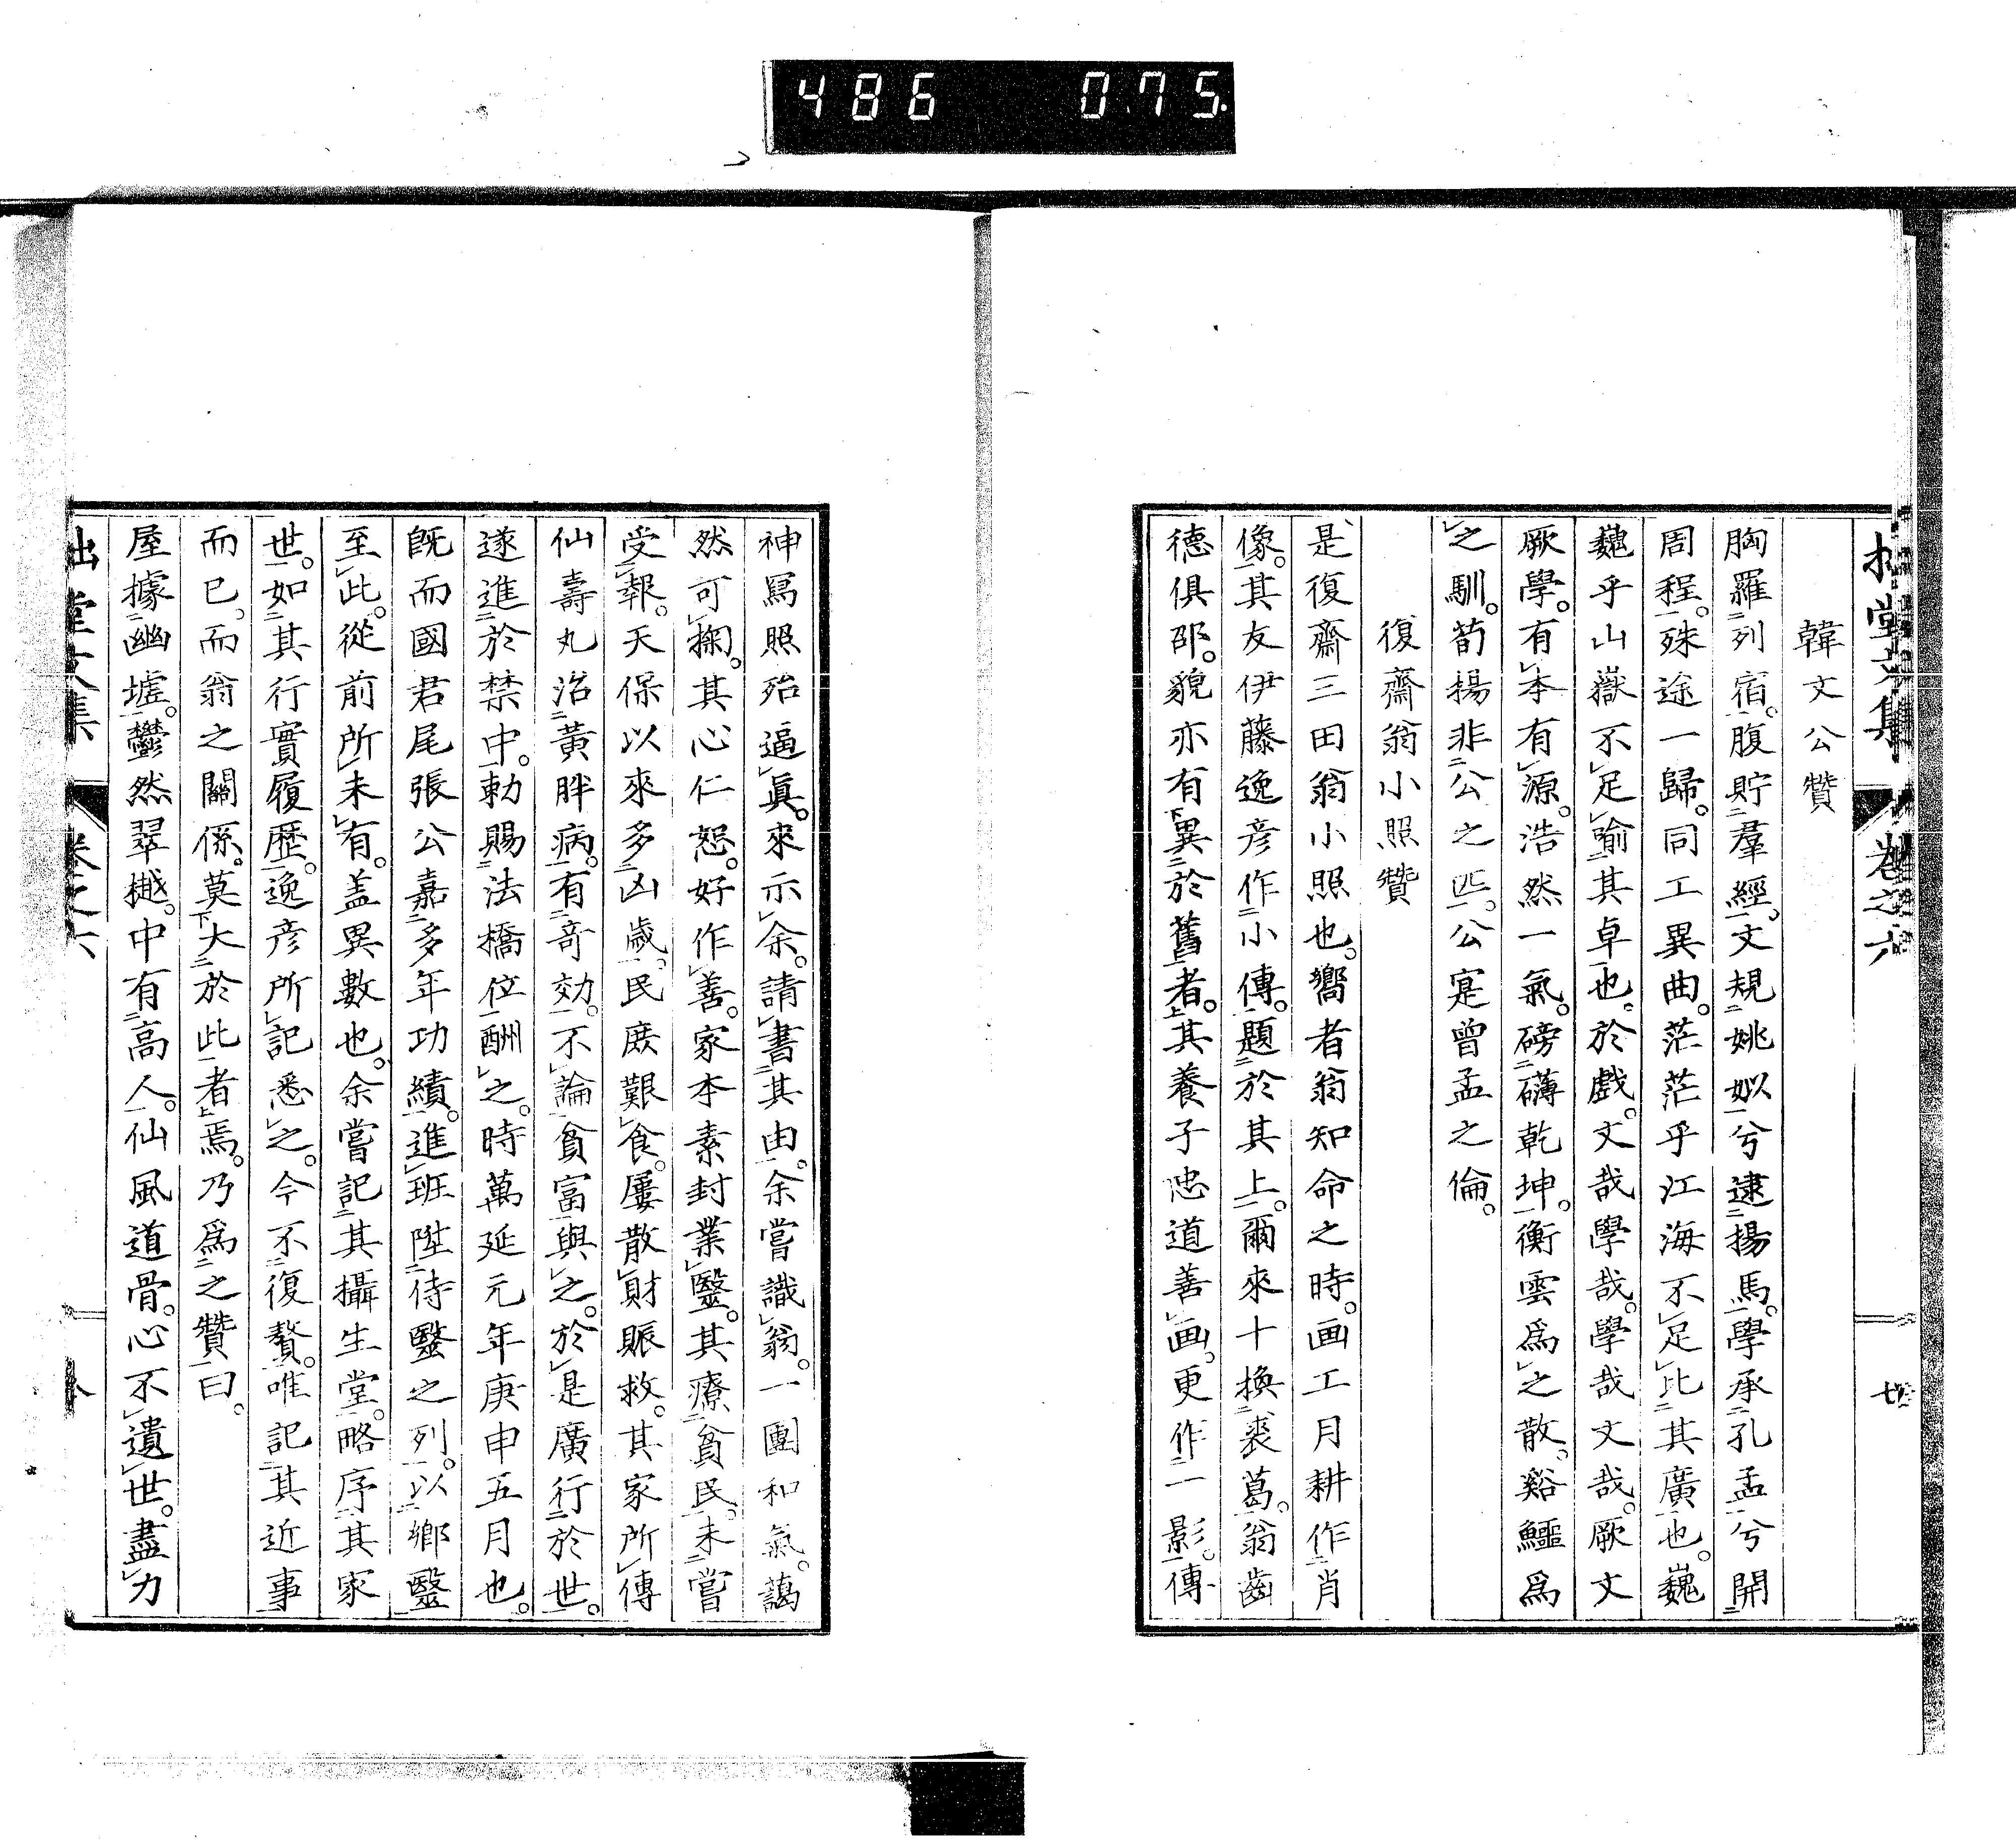 486 0.75
韓文公贊
胸羅列宿。腹貯羣經。文規姚姒兮逮揚馬。學承孔孟兮開
周程。殊途一歸。同工異曲。茫茫乎江海不足比其廣也。巍
巍乎山嶽不足喻其卓也。於戲文哉學哉。學哉文哉。厥文
厥學。有本有源。浩然一氣。磅礴乾坤。衡雲爲之散。谿鱷爲
之馴。荀揚非公之匹。公寔曾孟之倫。
復齋翁小照贊
是復齋三田翁小照也。嚮者翁知命之時。画工月耕作肖
像。其友伊藤逸彦作小傳。題於其上。爾來十換裘葛。翁齒
德俱邵。貌亦有異於舊者。其養子忠道善画。更作一影。傳
神寫照殆逼眞。來示余。請書其由。余嘗識翁。一團和氣。藹
然可掬。其心仁恕。好作善。家本素封業醫。其療貧民。未嘗
受報。天保以來多凶歲。民庶艱食。屢散財賑救。其家所傳
仙壽丸治黃胖病。有奇效。不論貧富與之。於是廣行於世。
遂進於禁中。勅賜法橋位酬之。時萬延元年庚申五月也。
既而國君尾張公嘉多年功績。進班陞侍醫之列。以鄉醫
至此。從前所未有。盖異數也。余嘗記其攝生堂。略序其家
世。如其行實履歷。逸彦所記悉之。今不復贅。唯記其近事
而已。而翁之關係。莫大於此者焉。乃爲之贊曰。
屋據幽墟。鬱然翠樾。中有高人。仙風道骨。心不遺世。盡力
拙堂文集
卷之六